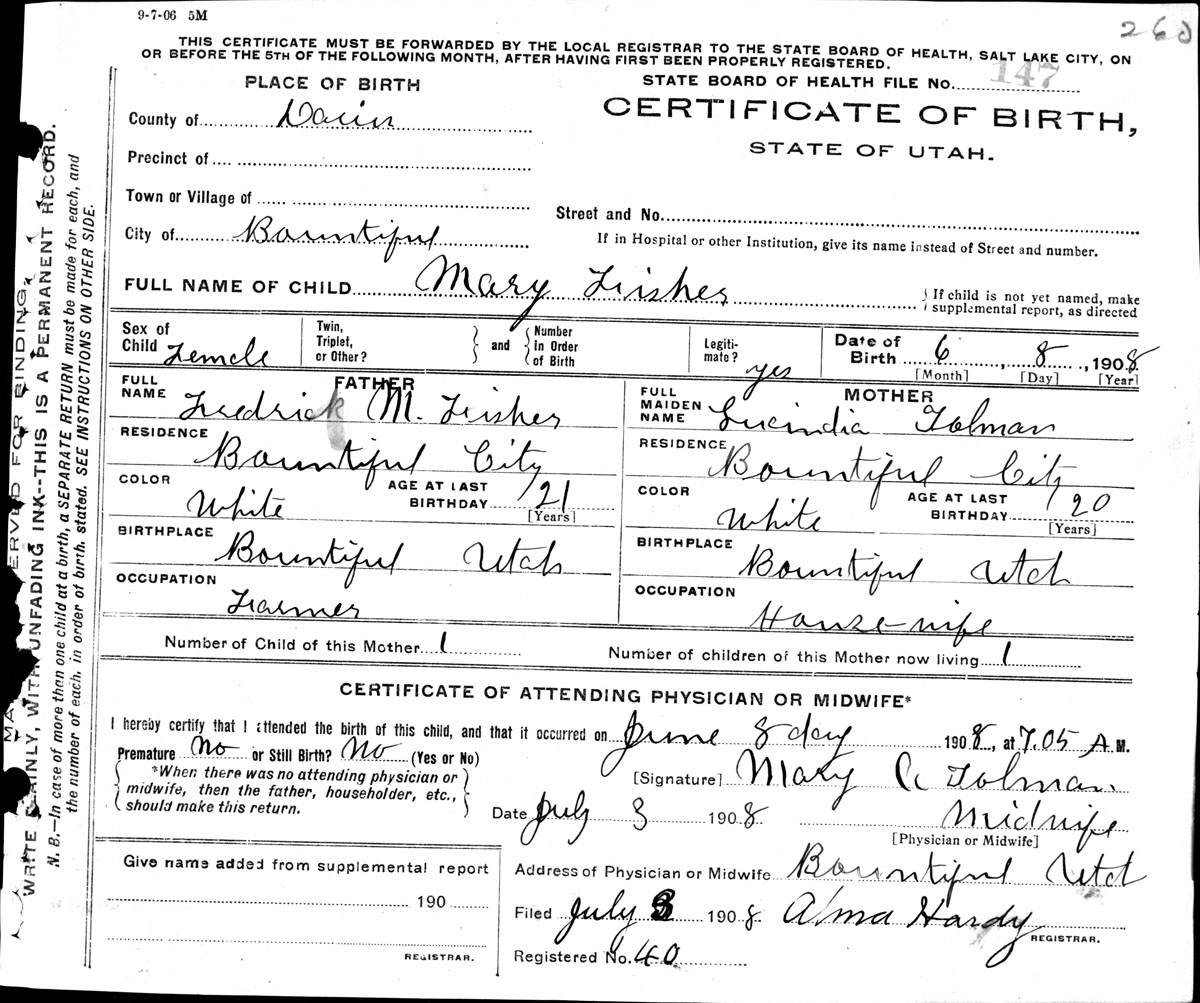 9-7-06 5M
260
THIS CERTIFICATE MUST BE FORWARDED BY THE LOCAL REGISTRAR TO THE STATE BOARD OF HEALTH, SALT LAKE CITY, ON
OR BEFORE THE 5TH OF THE FOLLOWING MONTH, AFTER HAVING FIRST BEEN PROPERLY REGISTERED.
PLACE OF BIRTH
STATE BOARD OF HEALTH FILE No. 147
CERTIFICATE OF BIRTH,
STATE OF UTAH.
County of Davis
Precinct of
Town or Village of
Street and No.
City of Bountiful
If in Hospital or other Institution, give its name instead of Street and number.
FULL NAME OF CHILD Mary Fisher
{ If child is not yet named, make
supplemental report, as directed
Sex of Child Female
Twin, Triplet, or Other?
} and { Number in Order of Birth
Legiti-mate? yes
Date of Birth 6, 8, 1908
[Month] [Day] [Year]
FATHER
FULL NAME Fredrick M. Fisher
RESIDENCE Bountiful City
COLOR White
AGE AT LAST BIRTHDAY 21
[Years]
BIRTHPLACE Bountiful Utah
OCCUPATION Farmer
MOTHER
FULL MAIDEN NAME Lucindia Tolman
RESIDENCE Bountiful City
COLOR White
AGE AT LAST BIRTHDAY 20
[Years]
BIRTHPLACE Bountiful Utah
OCCUPATION House wife
Number of Child of this Mother 1
Number of children of this Mother now living 1
CERTIFICATE OF ATTENDING PHYSICIAN OR MIDWIFE*
I hereby certify that I attended the birth of this child, and that it occurred on June 8 day 1908, at 7.05 A.M.
Premature No or Still Birth? No (Yes or No)
{ *When there was no attending physician or
midwife, then the father, householder, etc.,
should make this return. }
[Signature] Mary A Tolman
Date July 3 1908
Midwife
[Physician or Midwife]
Give name added from supplemental report
190
REGISTRAR.
Address of Physician or Midwife Bountiful Utah
Filed July 3 1908 Alma Hardy
REGISTRAR.
Registered No. 40
RESERVED FOR BINDING
WRITE PLAINLY, WITH UNFADING INK--THIS IS A PERMANENT RECORD.
N. B.—In case of more than one child at a birth, a SEPARATE RETURN must be made for each, and
the number of each, in order of birth, stated. SEE INSTRUCTIONS ON OTHER SIDE.